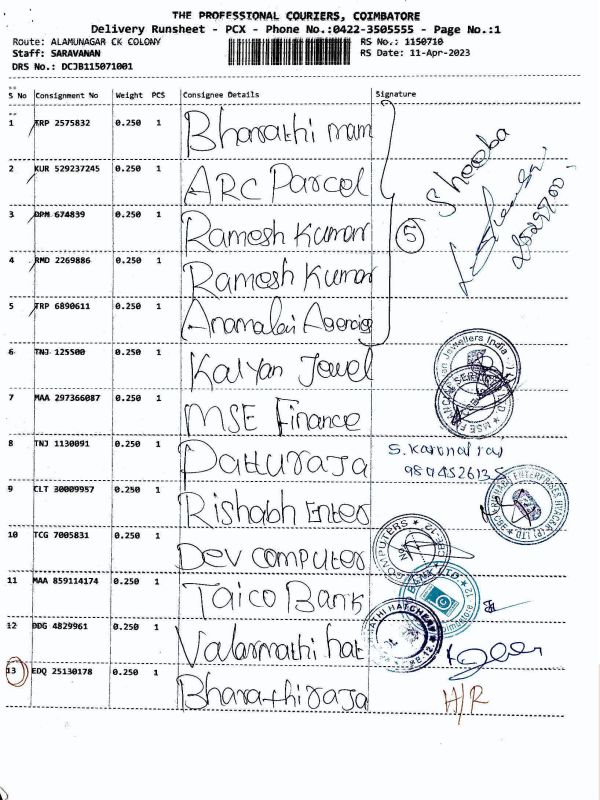 THE PROFESSIONAL COURIERS, COIMBATORE
Delivery Runsheet - PCX - Phone No.:0422-3505555 - Page No.:1
Route: ALAMUNAGAR CK COLONY RS No.: 1150710
Staff: SARAVANAN RS Date: 11-Apr-2023
DRS No.: DCJB115071001
S No Consignment No Weight PCS Consignee Details Signature
1 TRP 2575832 0.250 1 Bharathi mam
2 KUR 529237245 0.250 1 ARC Parcel
Sheeba
3 DPM 674839 0.250 1 Ramesh Kumar
5
4 RMD 2269886 0.250 1 Ramesh Kumar
5 TRP 6890611 0.250 1 Anamalai Agencies
6 TNJ 125500 0.250 1 Kalyan Jewel
7 MAA 297366087 0.250 1 MSE Finance
8 TNJ 1130091 0.250 1 Patturaja S. Karunal raj
9 CLT 30009957 0.250 1 Rishabh Enter
10 TCG 7005831 0.250 1 Dev computer
COMPUTERS
11 MAA 859114174 0.250 1 Taico Bank
BANK LTD
12 DDG 4829961 0.250 1 Valarmathi hat
HATCHERY
13 EDQ 25130178 0.250 1 Bharathiraja H/R